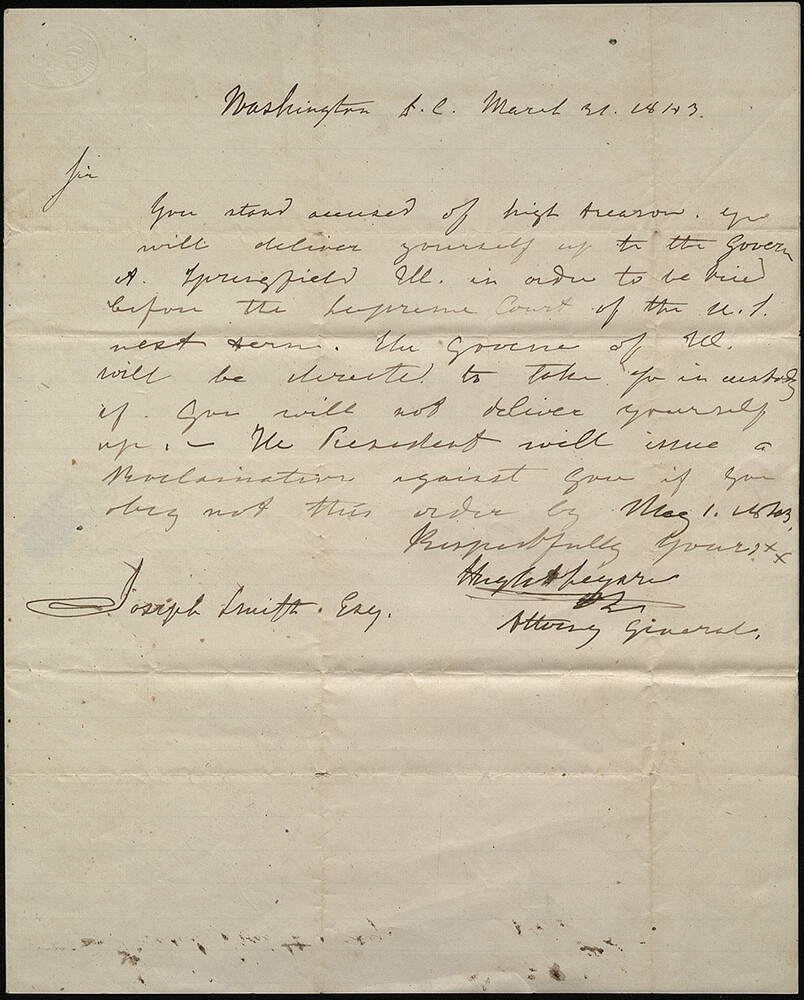 Washington D.C. March 31. 1843.
Sir
You stand accused of high treason. you
will deliver yourself up to the Govern
at Springfield Ill. in order to be tried
before the Supreme Court of the U.S.
next term. The Governe of Ill.
will be directed to take you in custody
if you will not deliver yourself
up. — The President will issue a
Proclamation against you if you
obey not this order by May 1. 1843,
Respectfully yours,
Hugh S Legare
Attorney General.
Joseph Smith. Esq.